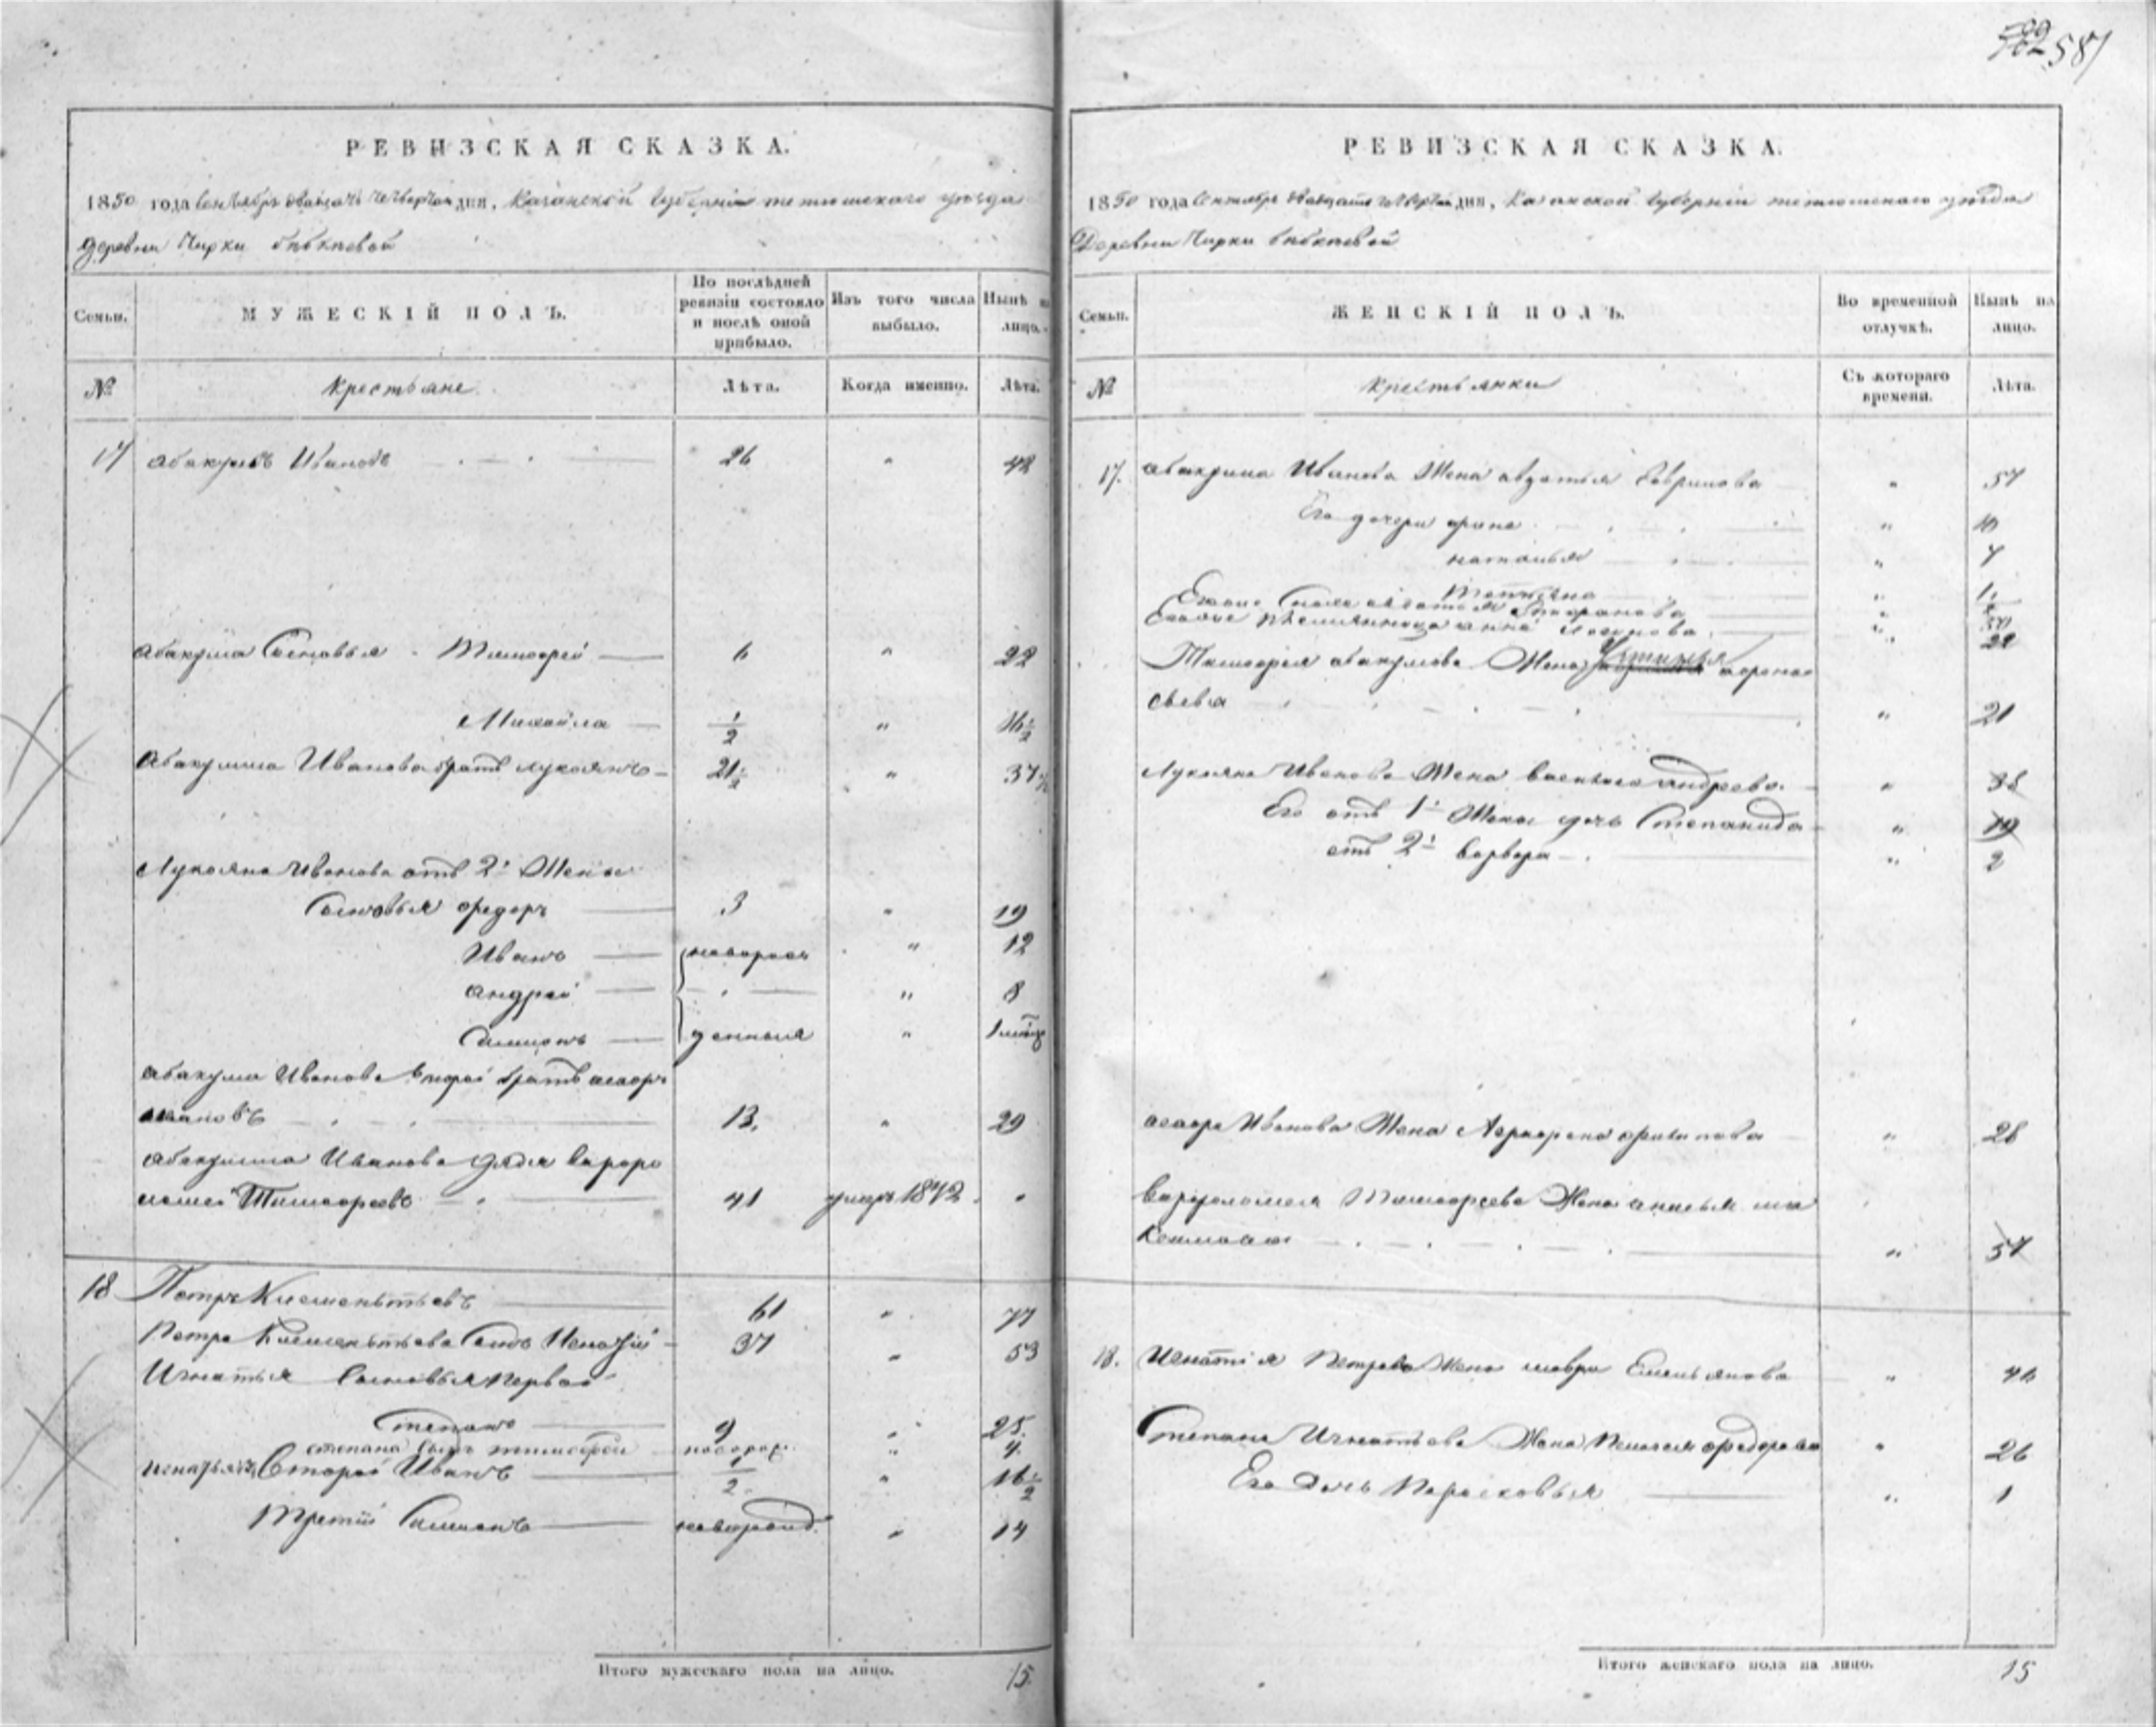 587
РЕВИЗСКАЯ СКАЗКА.
1850 года Сентября двадцать четвертого дня, Казанской Губернии тетюшскаго уезда
Деревни Чирки
Семьи.
МУЖЕСКІЙ ПОЛЪ.
По послѣдней ревизіи состояло и послѣ оной прибыло.
Изъ того числа выбыло.
Нынѣ на лицо.
№
крестьяне
Лѣта.
Когда именно.
Лѣта.
17 Абакумъ Ивановъ 26 " 42
Абакума Сыновья Тимофей 6 " 22
Михайла 1/2 " 16 1/2
Абакума Иванова братъ Лукоянъ 21 1/2 " 37 1/2
Лукояна Иванова отъ 2й Жены
Сыновья Федоръ 3 " 19
Иванъ новорож " 12
Андрей " 8
Симионъ денныя "
Абакума Иванова второй братъ
Ивановъ 13. " 29
Абакума Иванова дядя Варфоло
мей Тимофеевъ 41 умеръ 1842 "
18 Петръ Клементьевъ 61 " 77
Петра Клементьева Сынъ Игнатий 37 " 53
Игнатья Сыновья первой
Степанъ 9 " 25.
Степана сынъ Тимофей новорож. " 4.
Игнатья Второй Иванъ 1/2 " 16 1/2
Третій Симионъ новорожд. " 14
Итого мужескаго пола на лицо. 15
РЕВИЗСКАЯ СКАЗКА.
1850 года Сентября двадцать четвертого дня, Казанской Губерніи тетюшскаго уезда
Деревни Чирки
Семьи.
ЖЕНСКІЙ ПОЛЪ.
Во временной отлучкѣ.
Нынѣ на лицо.
№
крестьянки
Съ котораго времени.
Лѣта.
17. Абакума Иванова Жена Гаврилова "
Его дочери "
Наталья " 7
Татьяна "
Тимофея Абакумова Жена Афонас
сьева " 21
Лукояна Иванова Жена Василиса Андреева "
Его отъ 1й Жены дочь Степанида " 19
отъ 2й Варвара " 2
Иванова Жена Филипова " 28
Варфоломея Тимофеева Жена
" 57
18. Игнатія Петрова Жена Мавра Емельянова "
Степана Игнатьева Жена Пелагея Федорова " 26
Его дочь Парасковья " 1
Итого женскаго пола на лицо. 15